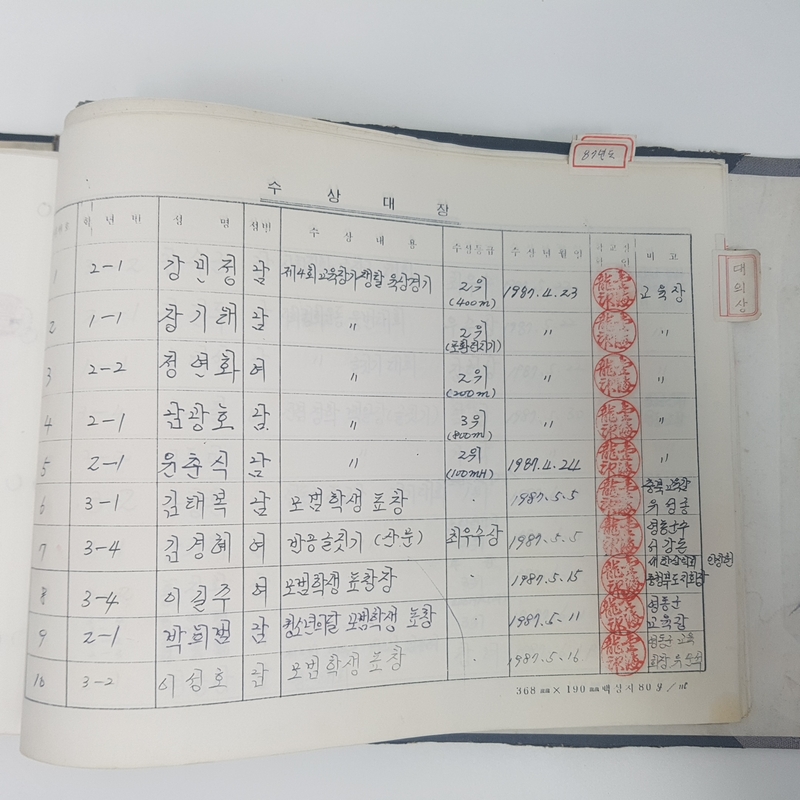 87년도
수 상 대 장
학 년 반 성 명 성별 수 상 내 용 수상등급 수 상 년 월 일 비 고
대 외 상
1 2-1 강민청 남 제4회 교육장기쟁탈 육상경기 2위 (400m) 1987.4.23 교육장
2 1-1 장기태 남 〃 2위 (포환던지기) 〃 〃
3 2-2 정연화 여 〃 2위 (200m) 〃 〃
4 2-1 광호 남 〃 3위 (800m) 〃
5 2-1 윤춘식 남 〃 2위 (100mH) 1987.4.24 〃
6 3-1 김태복 남 모범학생 표창 1987.5.5 충북교육감
7 3-4 김경혜 여 반공글짓기 (산문) 최우수상 1987.5.5 영동군수
8 3-4 이길주 여 모범학생 표창장 1987.5.15
9 2-1 박희범 남 청소년의달 모범학생 표창 1987.5.11 영동군 교육장
10 3-2 이성호 남 모범학생 표창 1987.5.16 영동군 교육
368㎜×190㎜백상지80g/㎡